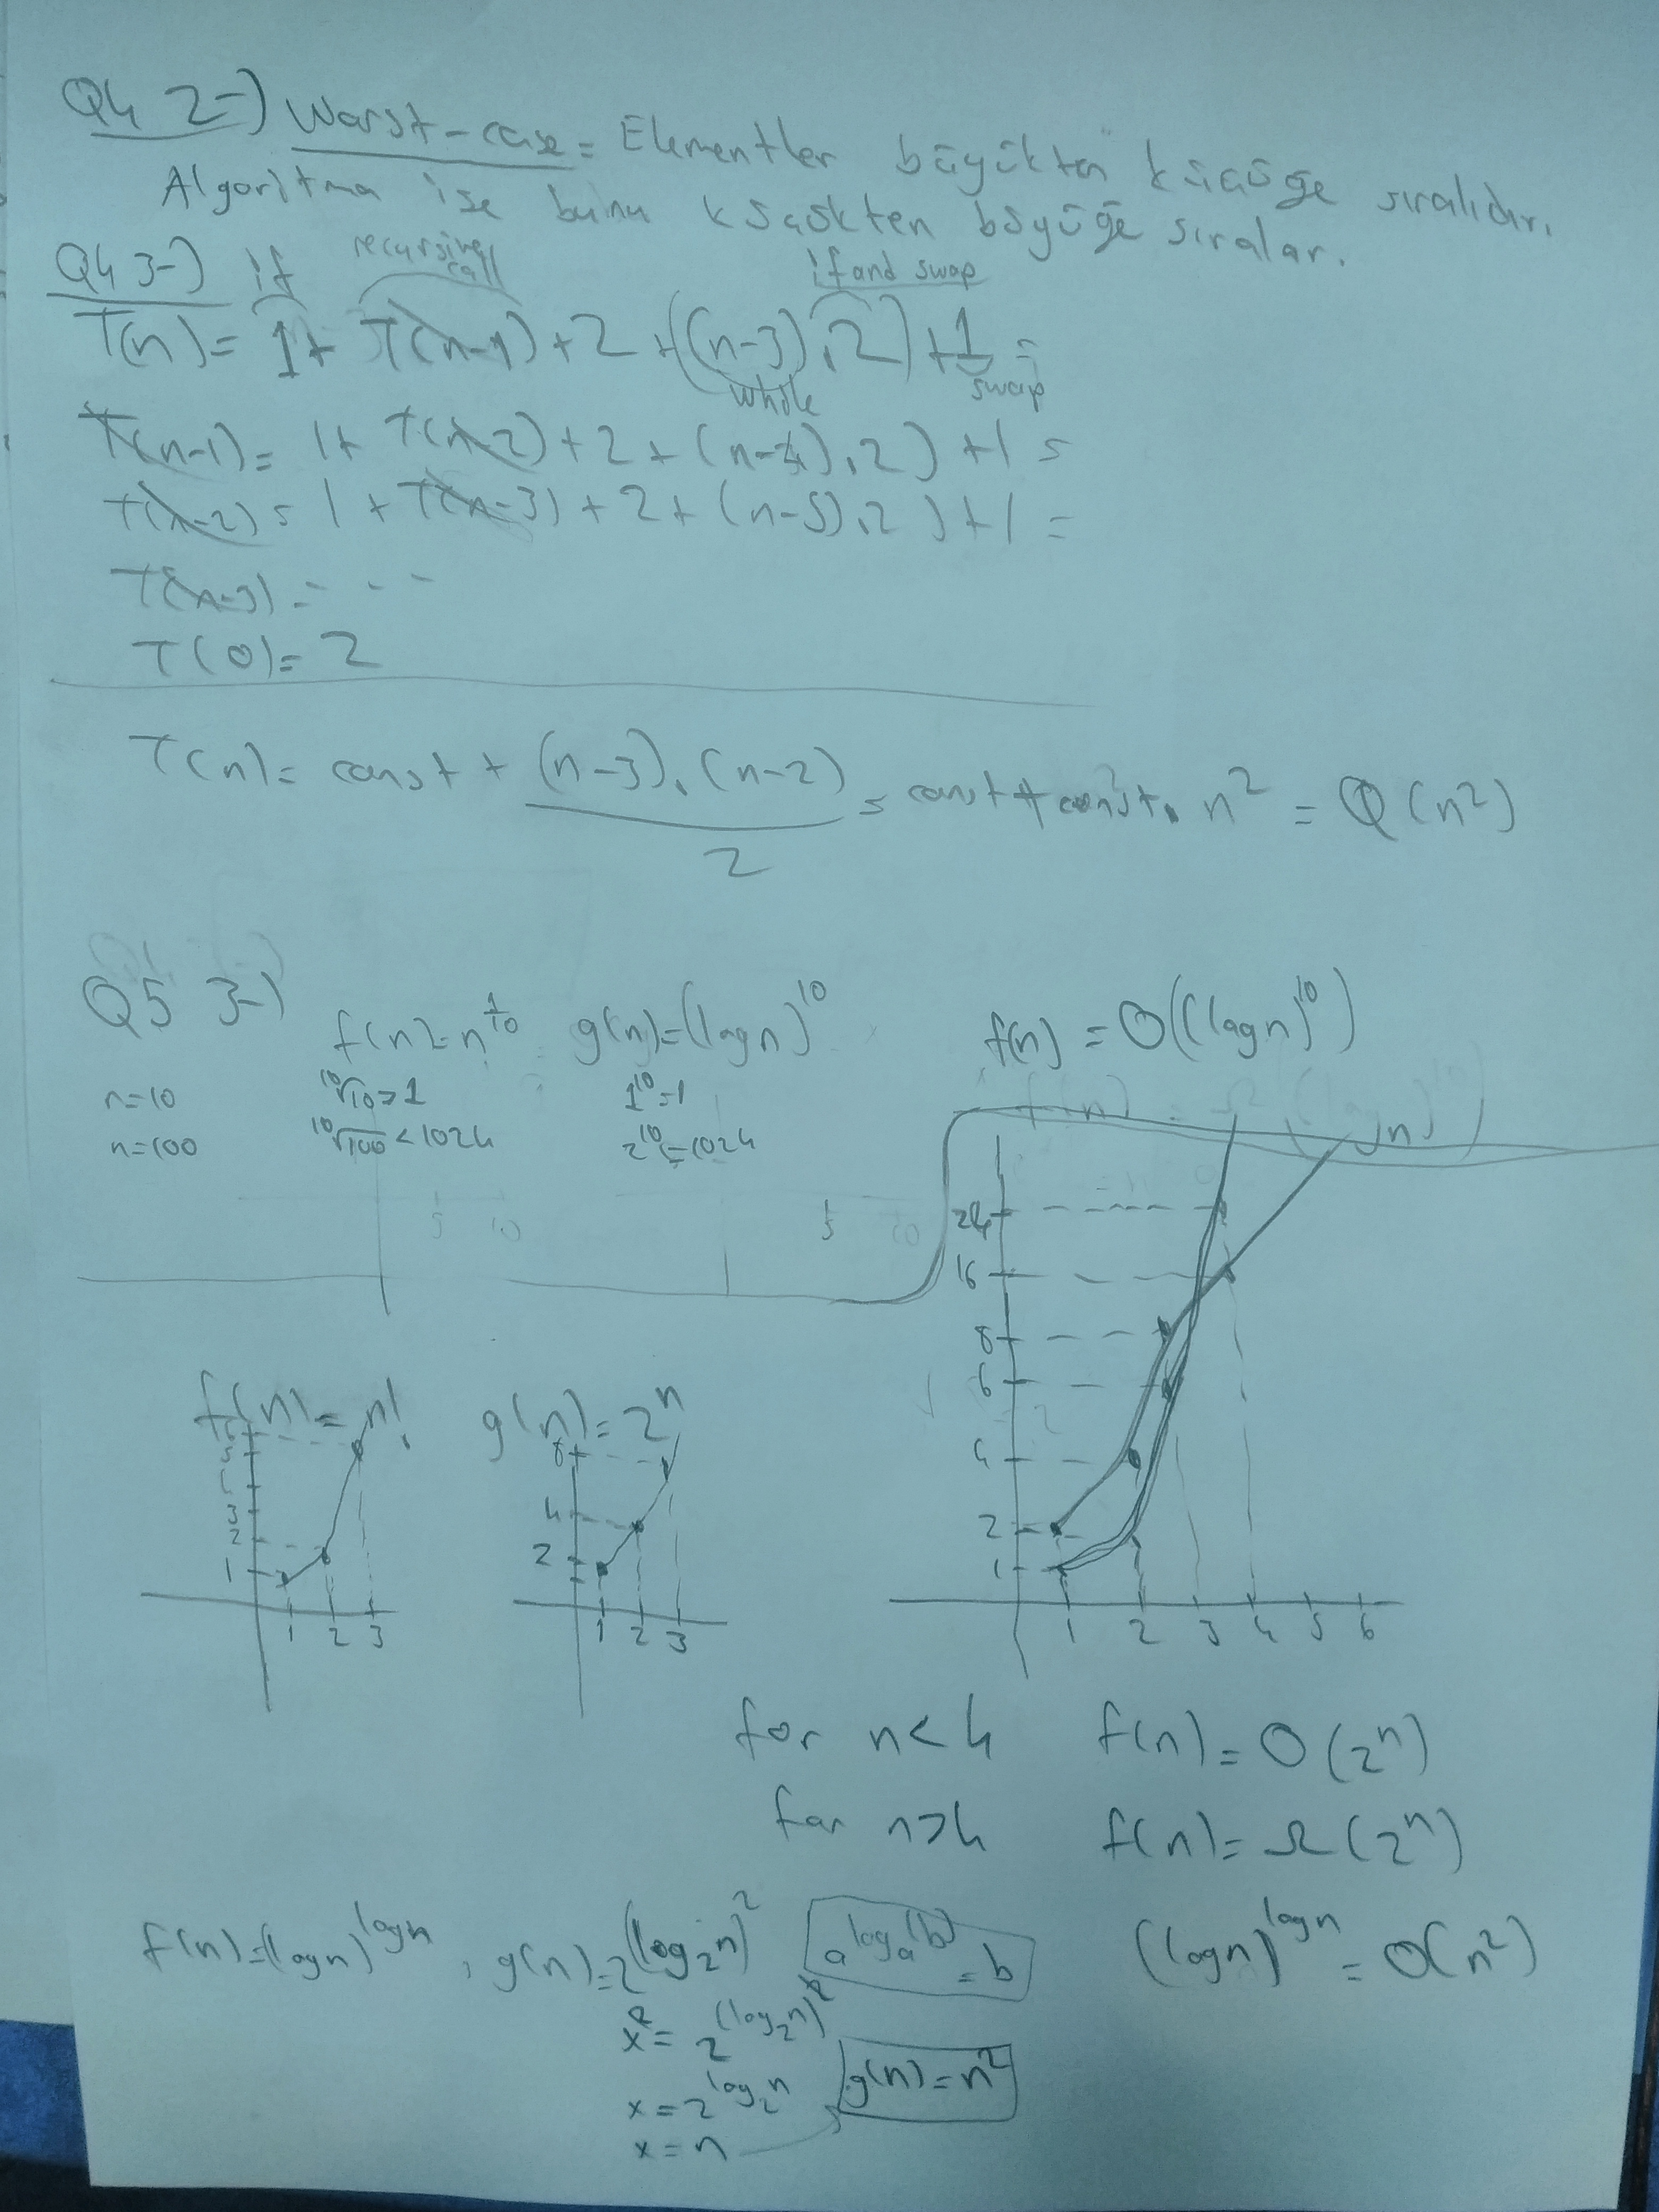 Q4 2-) Worst-case = Elementler büyükten küçüğe sıralıdır.
Algoritma ise bunu küçükten büyüğe sıralar.
Q4 3-) if recursive call if and swap
T(n) = 1 + T(n-1) + 2 + ((n-3).2) + 1 =
while swap
T(n-1) = 1 + T(n-2) + 2 + (n-4).2) + 1 =
T(n-2) = 1 + T(n-3) + 2 + (n-5).2) + 1 =
T(n-3) = - - -
T(0) = 2
T(n) = const + (n-3).(n-2) / 2 = const + const. n² = Θ(n²)
Q5 3-)
f(n) = n^1/10 g(n) = (log n)^10 f(n) = O((log n)^10)
n=10 ¹⁰√10 > 1 1^10 = 1
n=100 ¹⁰√100 < 1024 2^10 = 1024
f(n) = n! g(n) = 2^n
24
16
8
6
4
2
1
1 2 3 4 5 6
3
2
1
1 2 3
8
4
2
1 2 3
for n<4 f(n) = O(2^n)
for n>4 f(n) = Ω(2^n)
f(n) = (log n)^log n , g(n) = 2^(log₂n)^2 a^log_a(b) = b (log n)^log n = O(n²)
x² = 2^(log₂n)^2
x = 2^log₂n g(n) = n²
x = n